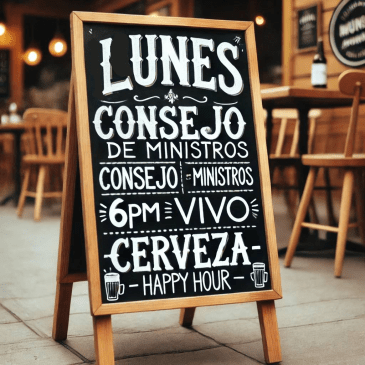 LUNES
CONSEJO
DE MINISTROS
CONSEJO MINISTROS
6PM VIVO
CERVEZA
- HAPPY HOUR -